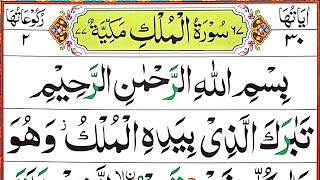 اٰیَاتُهَا ۳۰
۶۷ سُوْرَةُ الْمُلْكِ مَكِّیَّةٌ ۷۷
رُكُوْعَاتُهَا ۲
بِسْمِ اللّٰهِ الرَّحْمٰنِ الرَّحِیْمِ
تَبٰرَكَ الَّذِیْ بِیَدِهِ الْمُلْكُ ؗ وَهُوَ